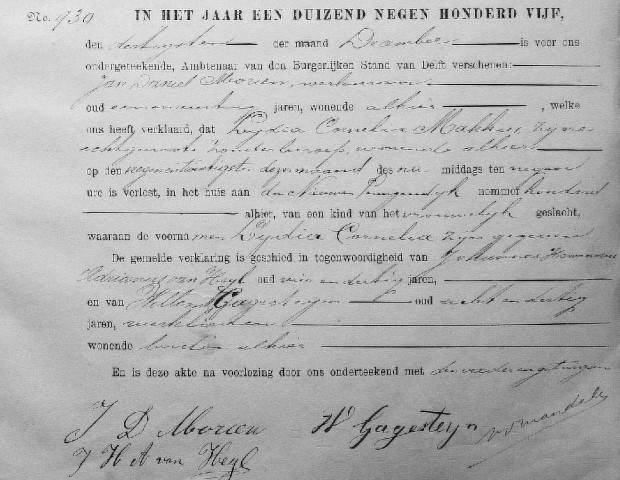 No. 930 IN HET JAAR EEN DUIZEND NEGEN HONDERD VIJF,
den dertigsten der maand December is voor ons
ondergeteekende, Ambtenaar van den Burgerlijken Stand van Delft verschenen:
Jan Daniel Moriën, werkman
oud eenentwintig jaren, wonende alhier, welke
ons heeft verklaard, dat Lydia Cornelia Makkers, zijne
echtgenoote zonder beroep, wonende alhier
op den negenentwintigsten dezer maand des na middags ten negen
ure is verlost, in het huis aan de Nieuwe Langendijk nommer honderd
alhier, van een kind van het vrouwelijk geslacht,
waaraan de voornamen Lydia Cornelia zijn gegeven
De gemelde verklaring is geschied in tegenwoordigheid van Johannes Hermanus
Adrianus van Heyl oud vier en dertig jaren,
en van Willem Gagesteijn oud acht en dertig
jaren, werklieden
wonende beiden alhier
En is deze akte na voorlezing door ons onderteekend met de verdere getuigen
J D Moriën W Gagesteijn
J H A van Heyl